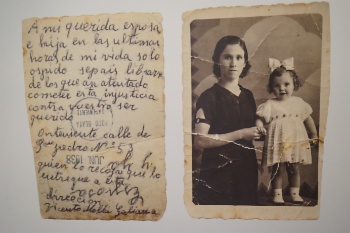 A mi querida esposa
e hija en las ultimas
horas de mi vida solo
os pido sepais libraros
de los que an atentado
cometer esta injusticia
contra vuestro ser
querido
Onteniente calle de
San Pedro Nº 53
JUN. 1938
quien lo recoja que lo
entregue a esta
direccion
Vicente Mollá Galiana